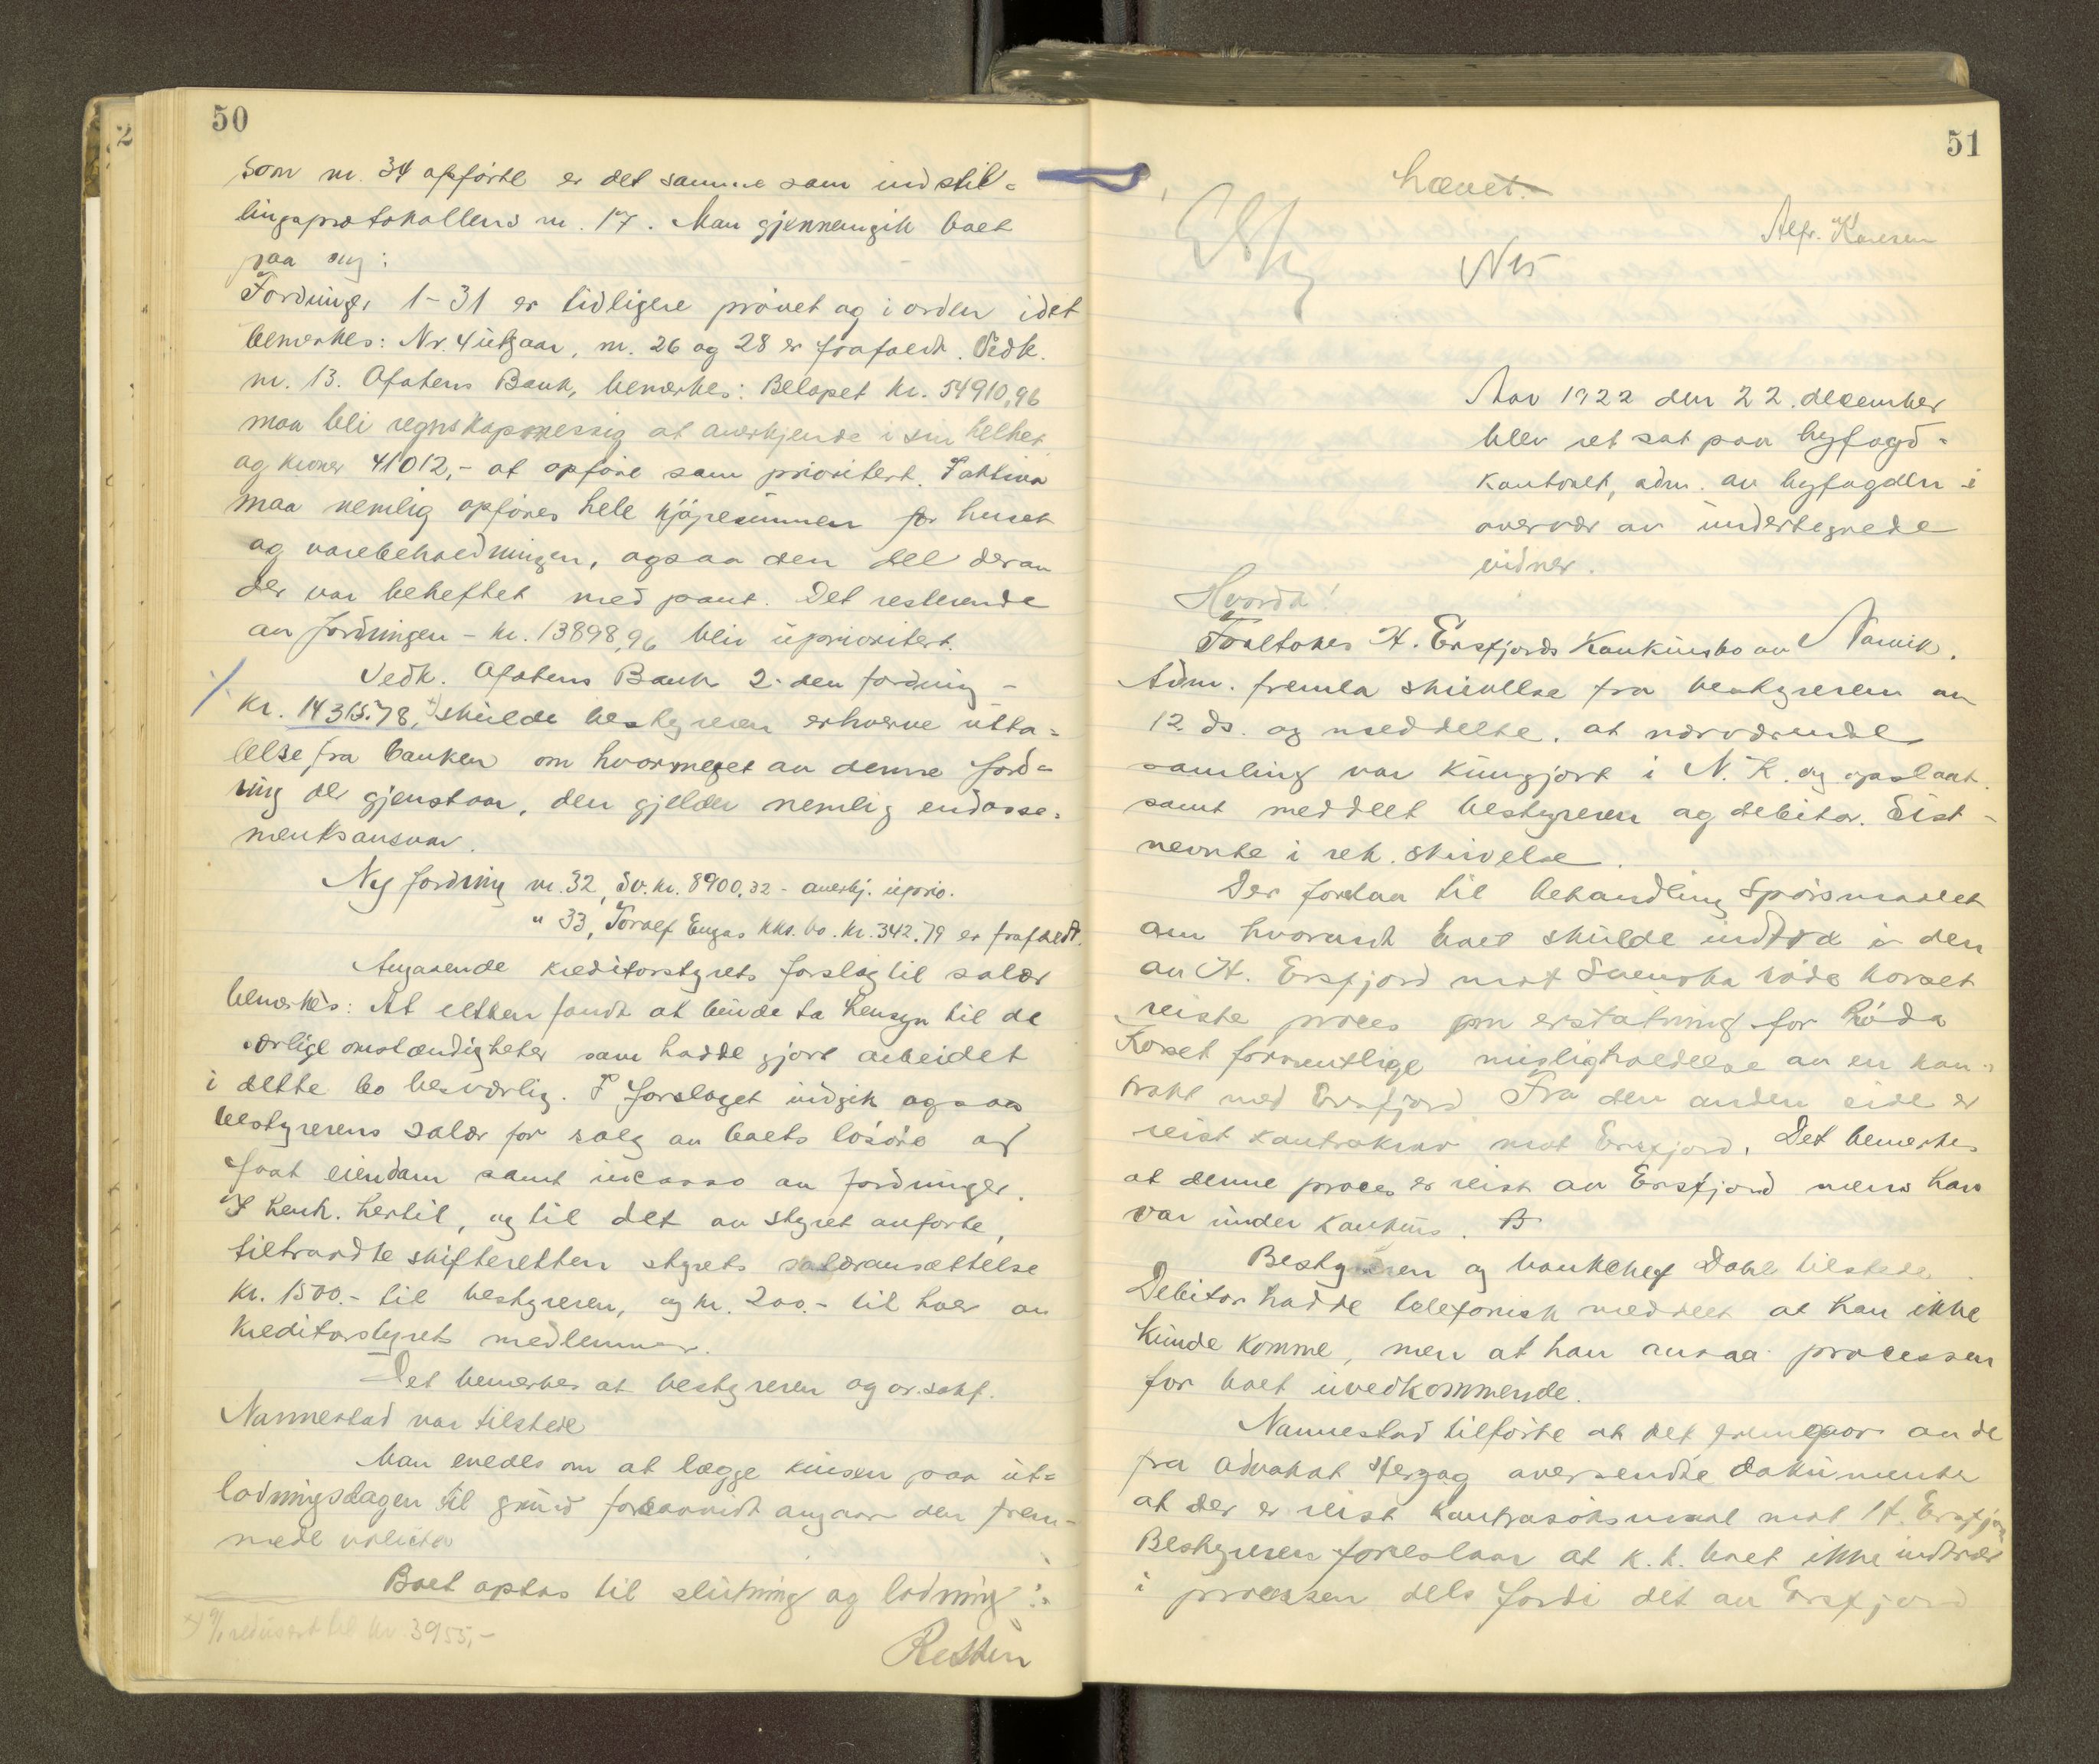 50
som nr. 34 opførte er det samme som indstil=
lingsprotokollens nr. 17. Man gjennemgik boet
paa ny:
Fordringer 1-31 er tidligere prøvet og i orden idet
bemerkes: Nr. 4 utgaar, nr. 26 og 28 er frafaldt. Vedk.
nr. 13. Ofotens Bank, bemerkes: Beløpet kr. 54910,96
maa bli regnskapsmessig at anerkjende i sin helhet
og kroner 41012,- at opføre som prioritert. I aktiva
maa nemlig opføres hele kjøpesummen for huset
og varebeholdningen, ogsaa den del derav
der var beheftet med pant. Det resterende
av fordringen - kr. 13898,96 blir uprioritert.
Vedk. Ofotens Bank 2. den fordring -
kr. 14315.78, +) skulde bestyreren erhverve utta=
lelse fra banken om hvormeget av denne ford=
ring der gjenstaar, den gjelder nemlig endosse=
mentsansvar.
Ny fordring nr. 32, Sv. kr. 8900,32 - anerkj. uprio.
" 33, Toralf Engas kks. bo. kr. 342.79 er frafaldt.
Angaaende kreditorstyrets forslag til salær
bemerkes: At retten fandt at burde ta hensyn til de
særlige omstændigheter som hadde gjort arbeidet
i dette bo besværlig. I forslaget indgik ogsaa
bestyrerens salær for salg av boets løsøre og
fast eiendom samt incasso av fordringer.
I henh. hertil, og til det av styret anførte,
tiltraadte skifteretten styrets salæransættelse
kr. 1500.- til bestyreren, og kr. 200.- til hver av
kreditorstyrets medlemmer.
Det bemerkes at bestyreren og or.sakf.
Nannestad var tilstede
Man enedes om at lægge kursen paa ut=
lodningsdagen til grund forsaavidt angaar den frem-
mede valuta
Boet optas til slutning og lodning:
+) redusert til kr. 3955,-
51
hævet.
Alfr. Karlsen
Aar 1922 den 22. december
blev ret sat paa byfogd=
kontoret, adm. av byfogden i
overvær av undertegnede
vidner.
Hvorda!
Foretokes H. Ersfjords konkursbo av Narvik.
Adm. fremla skrivelse fra bestyreren av
12. ds. og meddelte, at nærværende
samling var kungjort i N. K. og opslaat
samt meddelt bestyreren og debitor. Sist-
nevnte i rek. skrivelse.
Der forelaa til behandling spørsmaalet
om hvorvidt boet skulde indtræ i den
av H. Ersfjord mot Svenska röda korset
reiste proces om erstatning for Röda
Korset formentlige misligholdelse av en kon-
trakt med Ersfjord. Fra den anden side er
reist kontrakrav mot Ersfjord. Det bemerkes
at denne proces er reist av Ersfjord mens han
var under konkurs.
Bestyreren og bankchef Dahl tilstede.
Debitor hadde telefonisk meddelt at han ikke
kunde komme, men at han ansaa processen
for boet uvedkommende.
Nannestad tilførte at det fremgaar av de
fra advokat Herzog oversendte dokumenter
at der er reist kontrasøksmaal mot H. Ersfjord
Bestyreren foreslaar at k. k. boet ikke indtrær
i processen dels fordi det av Ersfjord